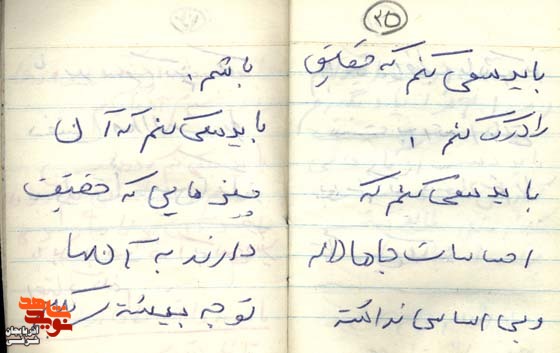 ۳۵
باید سعی کنم که حقایق
را درک کنم.
باید سعی کنم که
احساسات جاهلانه
و بی اساسی نداشته
باشم.
باید سعی کنم که آن
چیزهایی که حقیقت
دارند به آنها
توجه بیشتری
نوید شاهد
آذربایجان شرقی